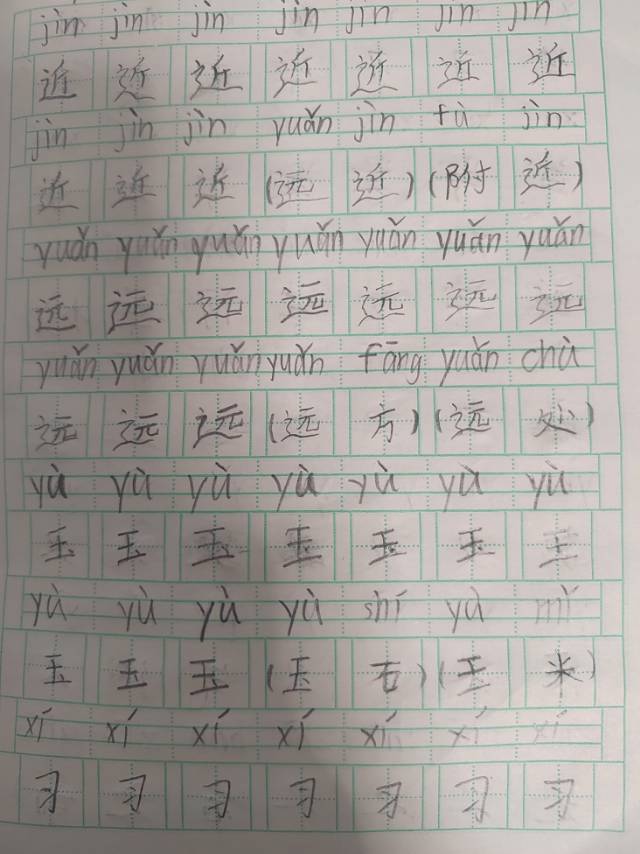 jìn jìn jìn jìn jìn jìn jìn
近 近 近 近 近 近 近
jìn jìn jìn yuǎn jìn fù jìn
近 近 近 (远 近) (附 近)
yuǎn yuǎn yuǎn yuǎn yuǎn yuǎn yuǎn
远 远 远 远 远 远 远
yuǎn yuǎn yuǎn yuǎn fāng yuǎn chù
远 远 远 (远 方) (远 处)
yù yù yù yù yù yù yù
玉 玉 玉 玉 玉 玉 玉
yù yù yù yù shí yù mǐ
玉 玉 玉 (玉 石) (玉 米)
xí xí xí xí xí xí xí
习 习 习 习 习 习 习